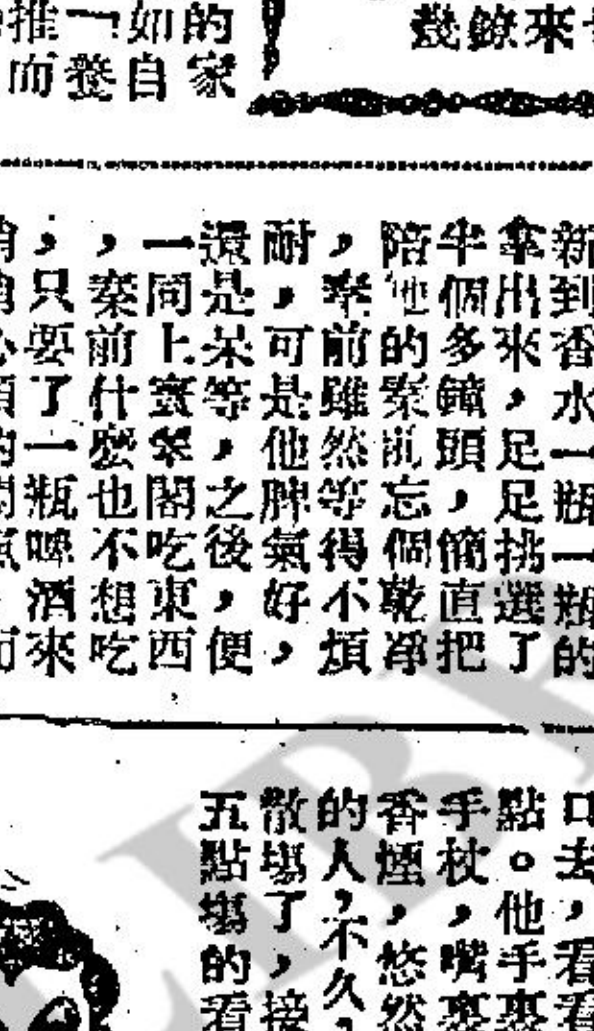 的
家
如
自
一
養
推
而
來
鐐
幾
新到香水一瓶一瓶的
拿出來，足足挑選了
半個多鐘頭，簡直把
陪他的秦前忘個乾淨
，秦前雖然等得不煩
耐，可是他脾氣好，
還是呆等，之後，便
一同上寰翠閣吃東西
，秦前什麼也不想吃
，只要了一瓶啤酒來
口去，看看
點。他手裏
手杖，嘴裏
香煙，悠然
的人，不久，
散場了，接
五點場的看